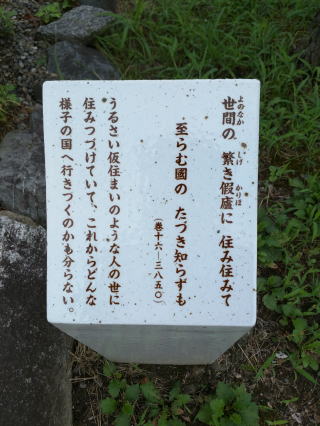 世間の 繁き假廬に 住み住みて
至らむ國の たづき知らずも
(巻十六―三八五〇)
うるさい仮住まいのような人の世に
住みつづけていて、これからどんな
様子の国へ行きつくのかも分らない。
よのなか
しげ
かりほ